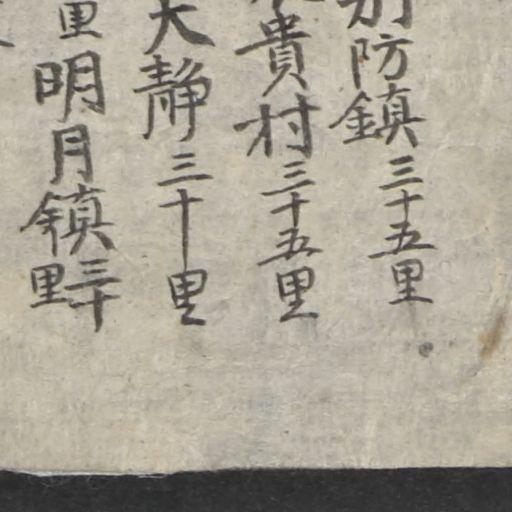 防鎮三十五里
貴村三十五里
大静三十里
里明月鎮三十里